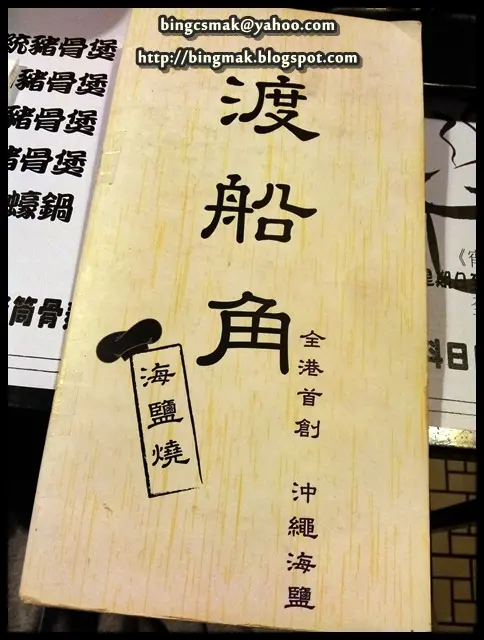 bingcsmak@yahoo.com
http://bingmak.blogspot.com
渡船角
海鹽燒
全港首創 沖繩海鹽
統豬骨煲
豬骨煲
豬骨煲
豬骨煲
蠔鍋
筒骨
星期日
日